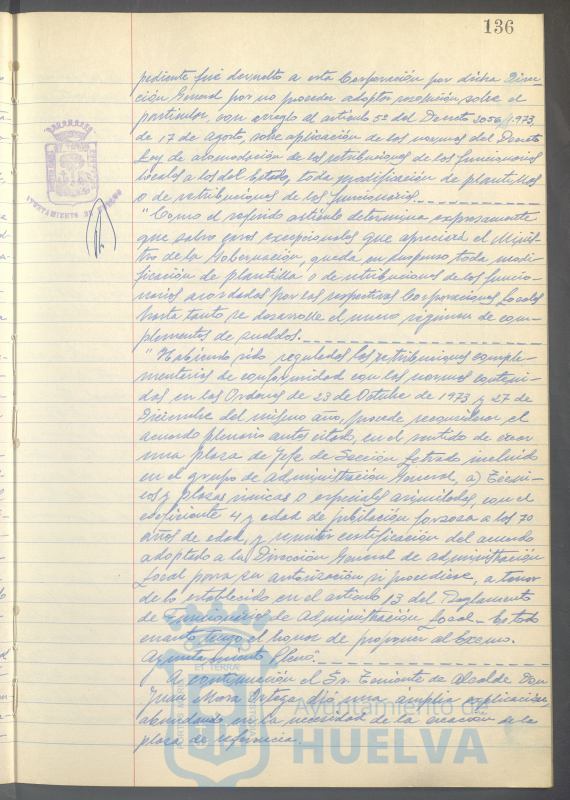 136
pediente fué devuelto a esta Corporación por dicha Direc-
ción General por no proceder adoptar resolución sobre el
particular, con arreglo al artículo 5º del Decreto 2056/1.973,
de 17 de Agosto, sobre aplicación de las normas del Decreto
Ley de acomodación de las retribuciones de los funcionarios
locales a los del Estado, toda modificación de plantillas
o de retribuciones de los funcionarios.
"Como el referido artículo determina expresamente
que salvo casos excepcionales que apreciará el Minis-
tro de la Gobernación, queda en suspenso toda modi-
ficación de plantilla o de retribuciones de los funcio-
narios acordadas por las respectivas Corporaciones Locales
hasta tanto se desarrolle el nuevo régimen de com-
plementos de sueldos.
"Habiendo sido reguladas las retribuciones comple-
mentarias de conformidad con las normas conteni-
das en las Ordenes de 23 de Octubre de 1973 y 27 de
Diciembre del mismo año, procede reconsiderar el
acuerdo plenario antes citado, en el sentido de crear
una plaza de Jefe de Sección Letrado incluido
en el grupo de Administración General, a) Técni-
cos y plazas únicas o especiales asimiladas, con el
coeficiente 4 y edad de jubilación forzosa a los 70
años de edad, y remitir certificación del acuerdo
adoptado a la Dirección General de Administración
Local para su autorización si procediese, a tenor
de lo establecido en el artículo 13 del Reglamento
de Funcionarios de Administración Local.- Es todo
cuanto tengo el honor de proponer al Excmo.
Ayuntamiento Pleno".
A continuación el Sr. Teniente de Alcalde Don
Juan Mora Ortega dió una amplia explicación,
abundando en la necesidad de la creación de la
plaza de referencia.
AYUNTAMIENTO DE HUELVA
Ayuntamiento de
HUELVA